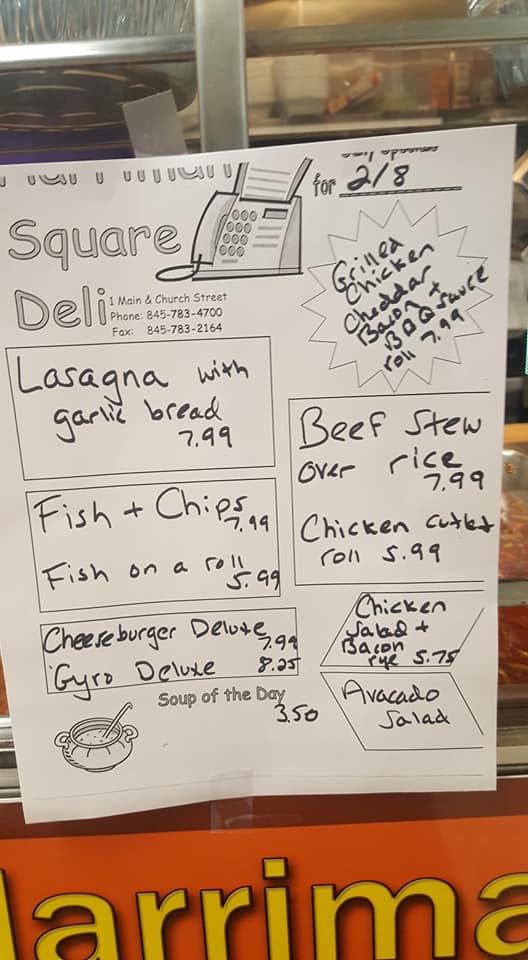 for 2/8
Square
Deli
1 Main & Church Street
Phone: 845-783-4700
Fax: 845-783-2164
Grilled
Chicken
Cheddar
Bacon +
BBQ sauce
roll 7.99
Lasagna with
garlic bread
7.99
Beef Stew
over rice
7.99
Chicken cutlet
roll 5.99
Fish + Chips
7.99
Fish on a roll
5.99
Cheeseburger Deluxe
7.99
Gyro Deluxe 8.25
Chicken
Salad +
Bacon
rye 5.75
Soup of the Day
3.50
Avacado
Salad
arrima